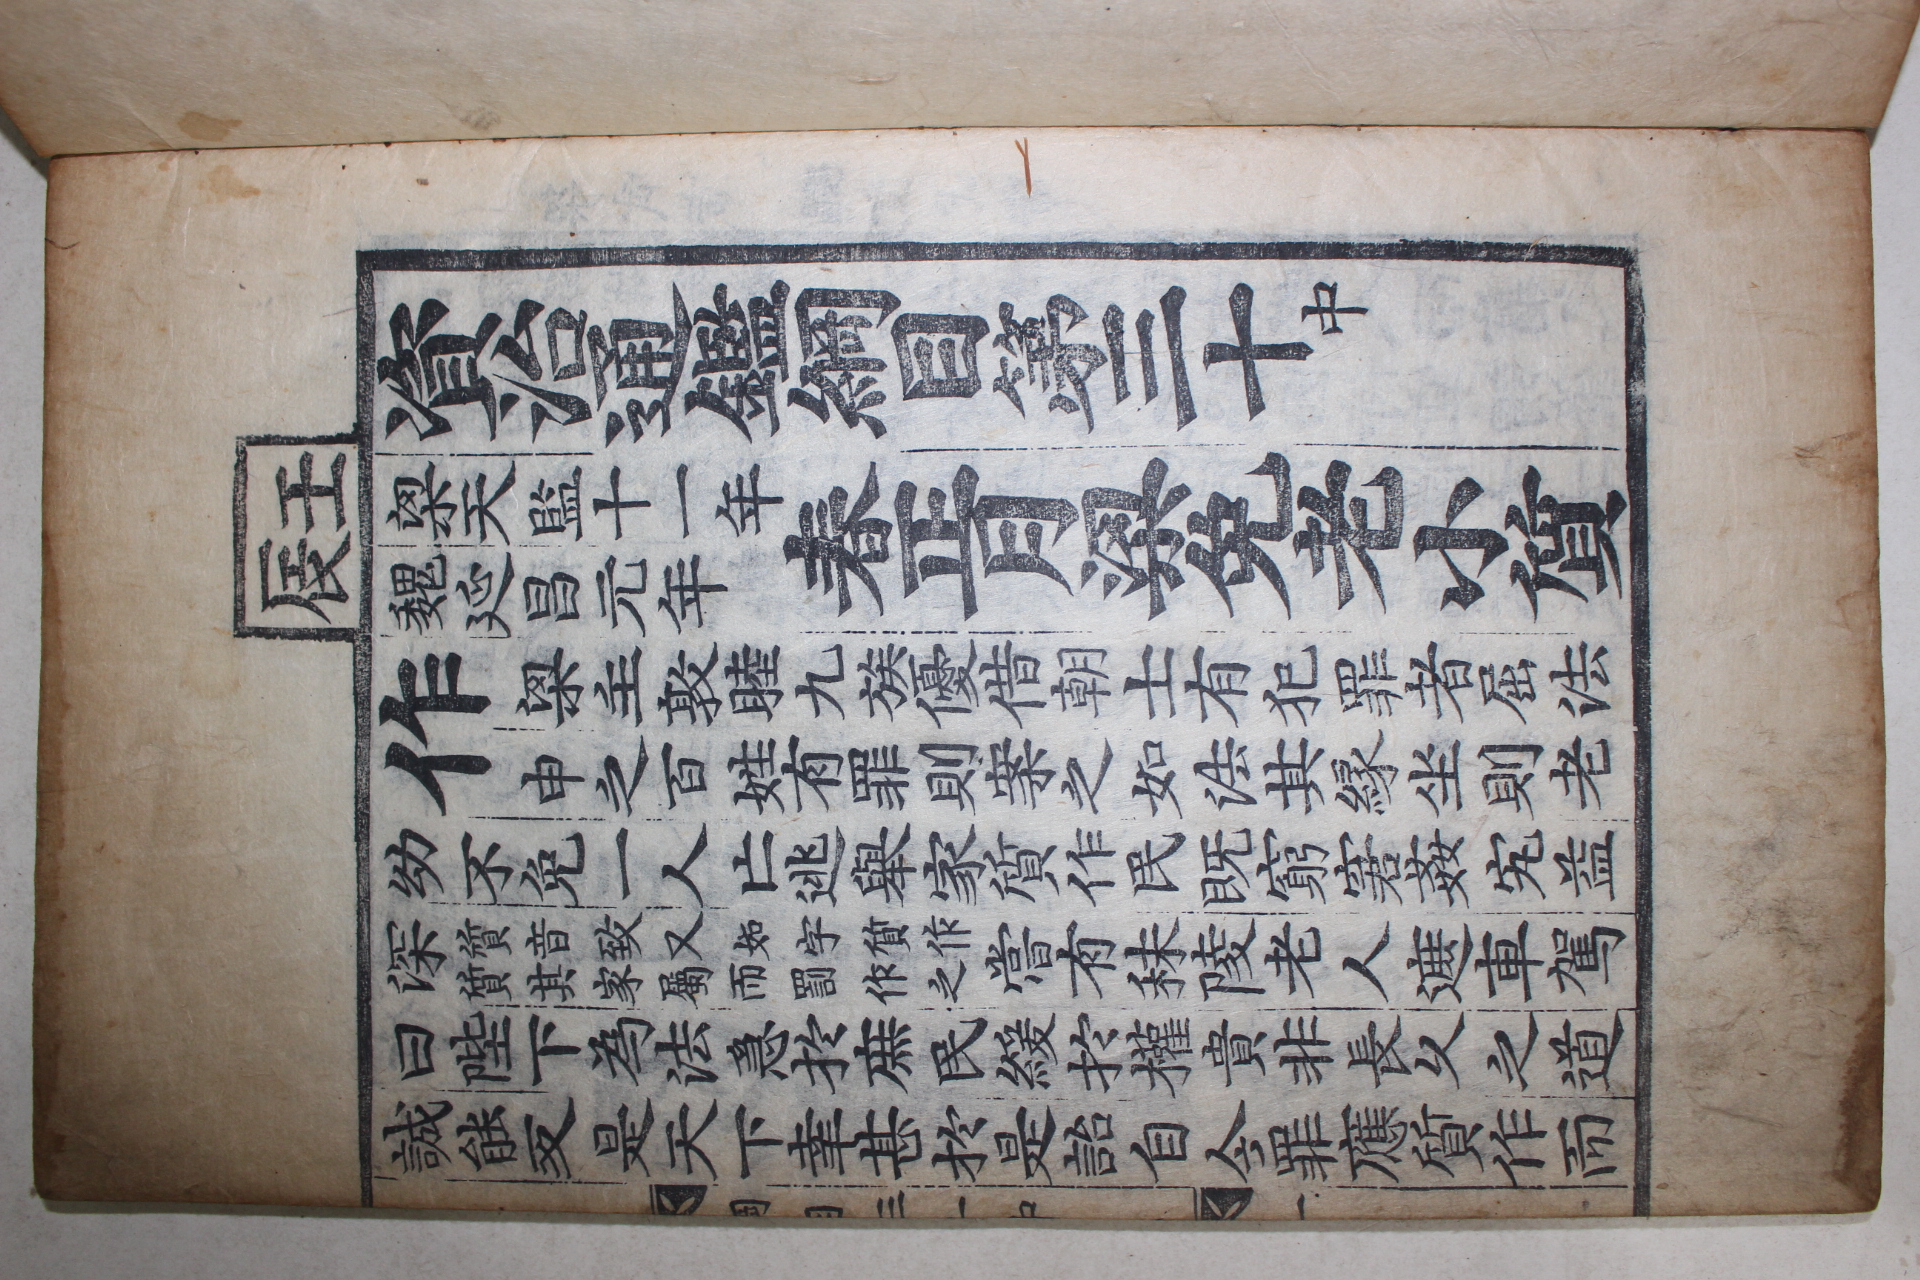 壬辰
資治通鑑綱目第三十中
梁天監十一年
魏延昌元年
春正月梁免老小質
作
梁主敦睦九族優借朝士有犯罪者屈法
申之百姓有罪則案之如法其緣坐則老
幼不免一人亡逃舉家質作民既窮窘姦宄益
深質音致又如字質作質其家屬而罰作之嘗有秣陵老人遮車駕
曰陛下為法急於庶民緩於權貴非長久之道
誠能反是天下幸甚於是詔自今罪應質作而
綱目三十中 一